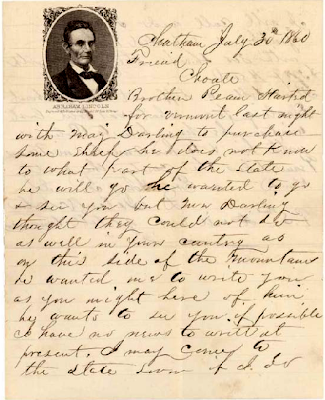 Chatham July 30th 1860
Friend
Choate
Brother Pearn Started
for vermont last night
with Maj Darling to purchase
some Sheep he does not know
to what part of the State
he will go he wanted to go
& see you but Darling
thought they could not do
as well in your country as
on this side of the mountains
he wanted me to write you
as you might here of him
he wants to see you if possible
I have no news to write at
present. I may going to
the State soon if I do
ABRAHAM LINCOLN